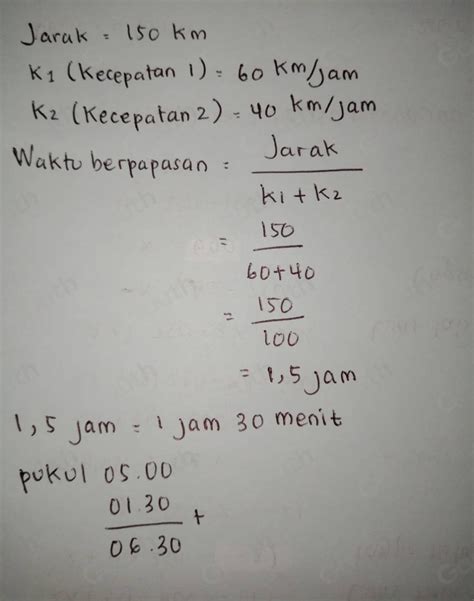 Jarak = 150 km
K1 (Kecepatan 1) = 60 km/jam
K2 (Kecepatan 2) = 40 km/jam
Waktu berpapasan = Jarak
k1 + k2
= 150
60+40
= 150
100
= 1,5 jam
1,5 jam = 1 jam 30 menit
pukul 05.00
01.30 +
06.30